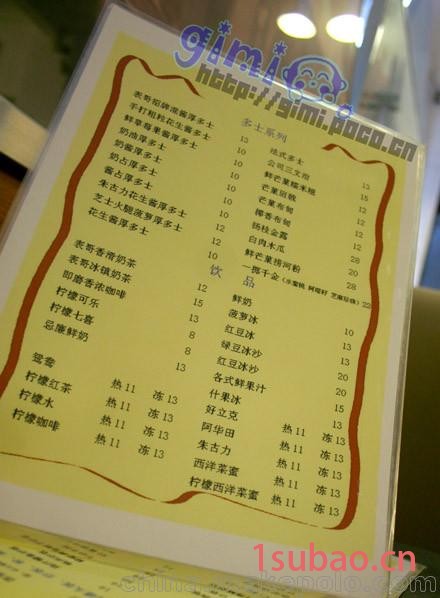 gimi
http://gimi.poco.cn
多士系列
表哥招牌混酱厚多士 13
手打粗粒花生酱厚多士 10
鲜草莓果酱厚多士 12
奶油厚多士 10
奶酱厚多士 10
奶占厚多士 10
酱占厚多士 10
朱古力花生酱厚多士 12
芝士火腿菠萝厚多士 12
花生酱厚多士 10
法式多士 13
公司三文治 15
鲜芒果糯米糍 12
芒果班戟
芒果布甸 12
椰香布甸 12
杨枝金露
白肉木瓜
鲜芒果捞河粉 28
一掷千金 22
饮品
表哥香滑奶茶 10
表哥冰镇奶茶 12
即磨香浓咖啡 15
柠檬可乐 13
柠檬七喜 8
忌廉鲜奶 8
鸳鸯 13
柠檬红茶 热 11 冻 13
柠檬水 热 11 冻 13
柠檬咖啡 热 11 冻 13
热 11 冻 13
鲜奶
菠萝冰 10
红豆冰 13
绿豆冰沙
红豆冰沙 20
各式鲜果汁 20
什果冰 15
好立克
阿华田 热 11 冻 13
朱古力 热 11 冻 13
西洋菜蜜 热 11 冻 13
柠檬西洋菜蜜 热 11 冻 13
1subao.cn